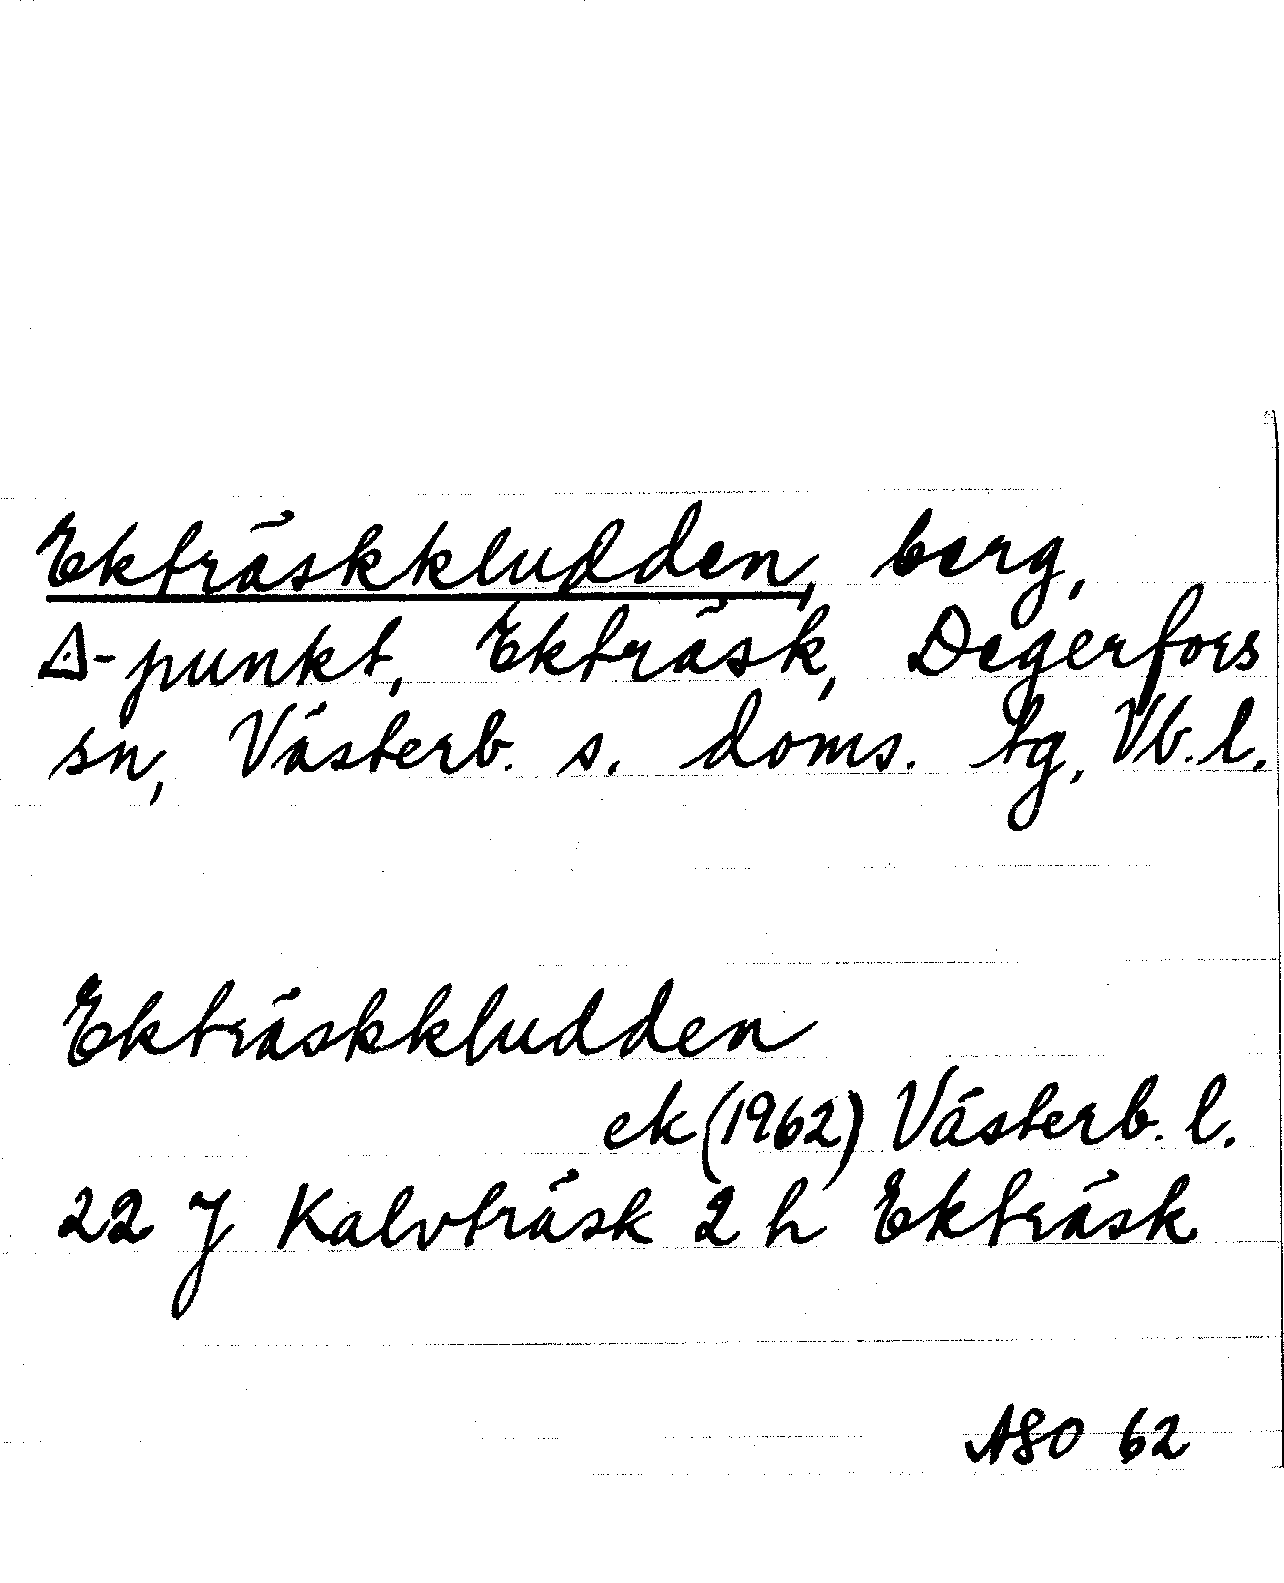 Ekträskkludden, berg,
△-punkt, Ekträsk, Degerfors
sn, Västerb. s. doms. tg, Vb. l.
Ekträskkludden
ek (1962) Västerb. l.
22 J Kalvträsk 2 h Ekträsk
ASO 62